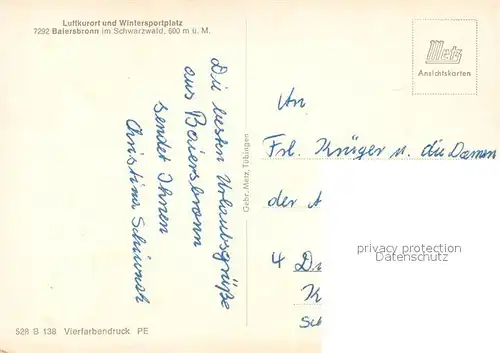 Luftkurort und Wintersportplatz
7292 Baiersbronn im Schwarzwald, 600 m ü. M.
Die besten Urlaubsgrüße
aus Baiersbronn
sendet Ihnen
Christina
528 B 138 Vierfarbendruck PE
Gebr. Metz, Tübingen
Metz
Ansichtskarten
An
Frl. Krüger u. die Damen
der A
4 D
K
Sch
privacy protection
AnsichtskartenVersand.com